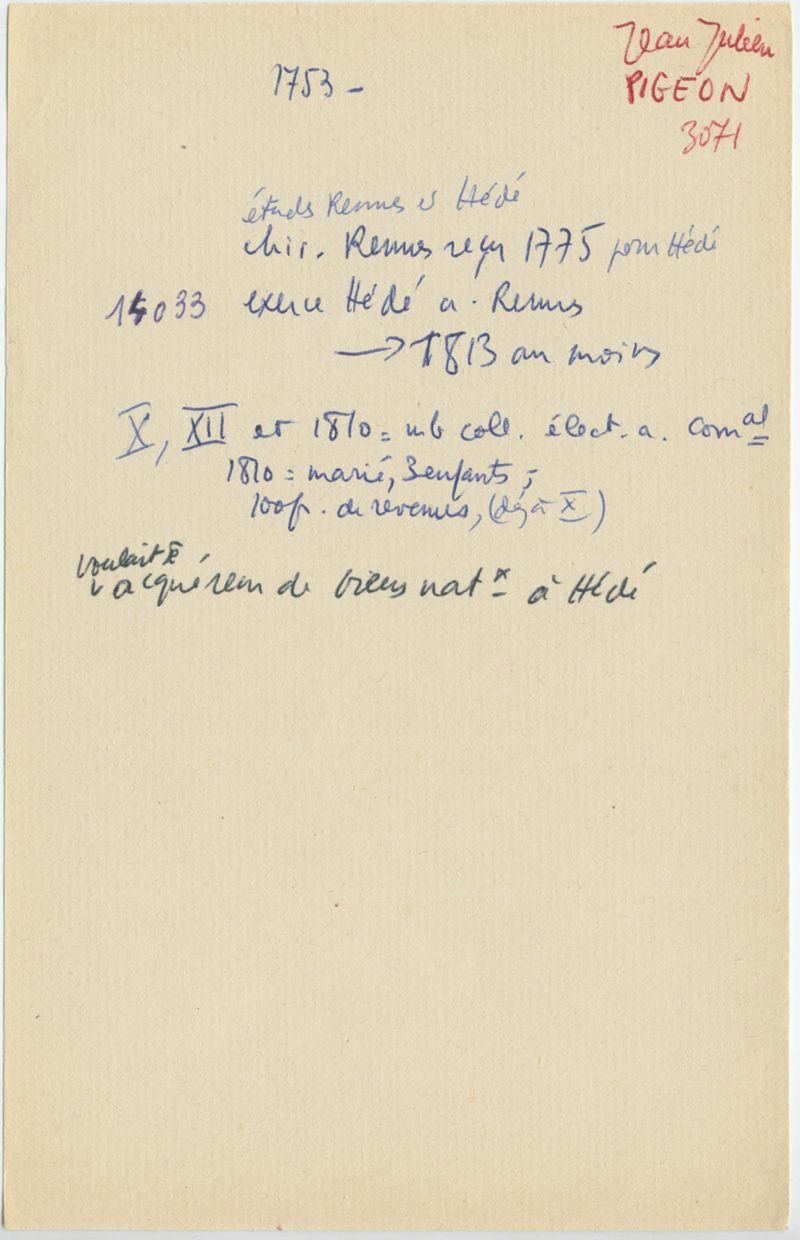 Jean Julien
PIGEON
3071
1753 -
études Rennes et Hédé
chir. Rennes reçu 1775 pour Hédé
14033 exerce Hédé a. Rennes
→ 1813 au moins
X, XII et 1810 = mb coll. élect. a. comal
1810 = marié, 3 enfants ;
100fr. de revenus, (déjà X)
voulait X
acquéreur de biens natx à Hédé